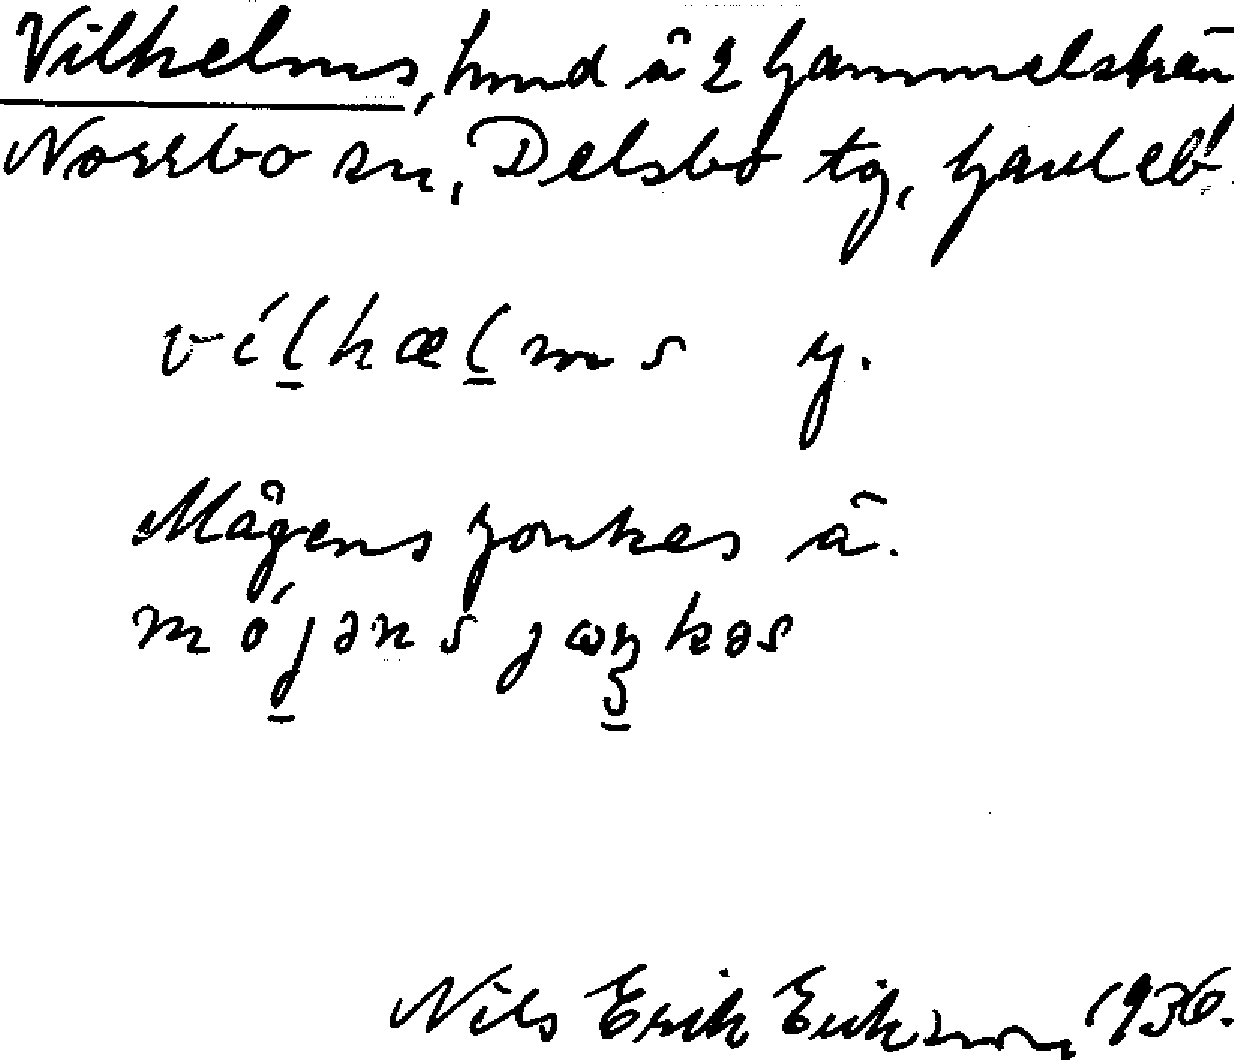 Vilhelms, hmd å 2 Gammelsträn
Norrbo sn, Delsbo tg, Gävleb.
vílhælms y.
Mågens Jonkes ä.
mójəns jɷŋkəs
Nils Erik Eriksson 1936.